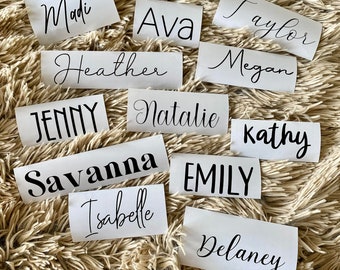 Madi
Ava
Taylor
Heather
Megan
JENNY
Natalie
Kathy
Savanna
EMILY
Isabelle
Delaney